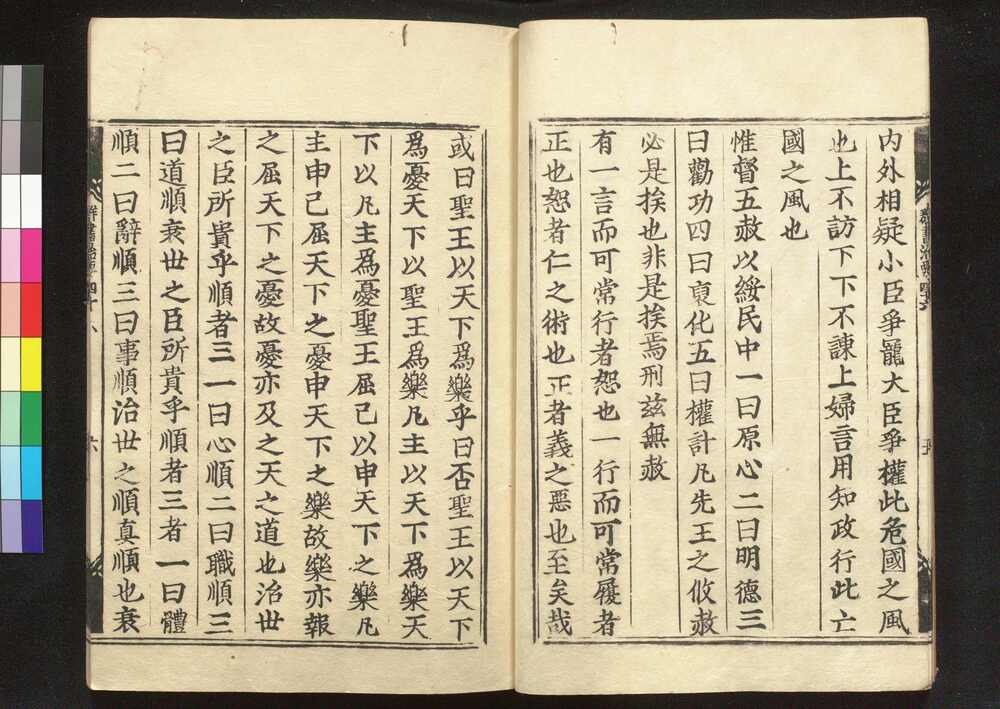 内外相疑小臣爭寵大臣爭權此危國之風
也上不訪下下不諫上婦言用知政行此亡
國之風也
惟督五赦以綏民中一曰原心二曰明德三
曰勸功四曰褒化五曰權計凡先王之攸赦
必是挨也非是挨焉刑茲無赦
有一言而可常行者恕也一行而可常履者
正也恕者仁之術也正者義之惡也至矣哉
或曰聖王以天下爲樂乎曰否聖王以天下
爲憂天下以聖王爲樂凡主以天下爲樂天
下以凡主爲憂聖王屈己以申天下之樂凡
主申己屈天下之憂申天下之樂故樂亦報
之屈天下之憂故憂亦及之天之道也治世
之臣所貴乎順者三一曰心順二曰職順三
曰道順衰世之臣所貴乎順者三者一曰體
順二曰辭順三曰事順治世之順真順也衰
群書治要四十六
六